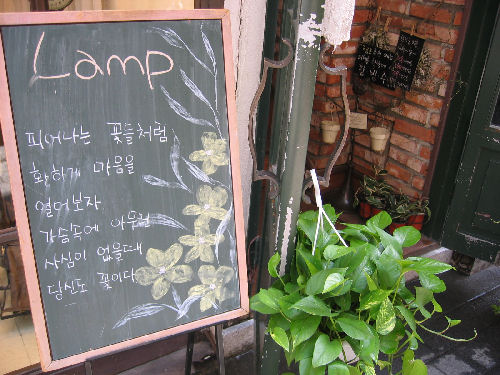 Lamp
피어나는 꽃들처럼
환하게 마음을
열어보자
가슴속에 아무런
사심이 없을때
당신도 꽃이다